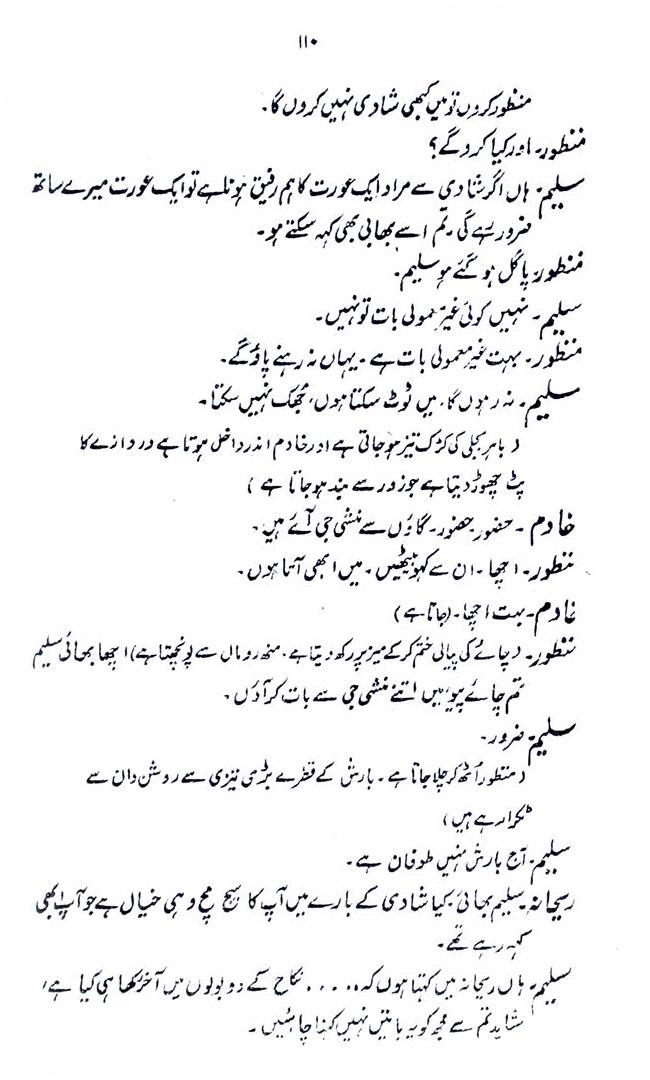 ۱۱۰
منظور کروں تو میں کبھی شادی نہیں کروں گا۔
منظور۔ اور کیا کرو گے؟
سلیم۔ ہاں اگر شادی سے مراد ایک عورت کا ہم رفیق ہونا ہے تو ایک عورت میرے ساتھ
ضرور رہے گی۔ تم اسے بھابی بھی کہہ سکتے ہو۔
منظور۔ پاگل ہو گئے ہو سلیم۔
سلیم۔ نہیں کوئی غیر معمولی بات تو نہیں۔
منظور۔ بہت غیر معمولی بات ہے۔ یہاں نہ رہنے پاؤ گے۔
سلیم۔ نہ رہوں گا، میں ٹوٹ سکتا ہوں، جھک نہیں سکتا۔
(باہر بجلی کی کڑک تیز ہو جاتی ہے اور خادم اندر داخل ہوتا ہے دروازے کا
پٹ چھوڑ دیتا ہے جو زور سے بند ہو جاتا ہے)
خادم۔ حضور حضور۔ گاؤں سے منشی جی آئے ہیں۔
منظور۔ اچھا۔ ان سے کہو بیٹھیں۔ میں ابھی آتا ہوں۔
خادم۔ بہت اچھا۔ (جاتا ہے)
منظور۔ (چائے کی پیالی ختم کر کے میز پر رکھ دیتا ہے، منھ رومال سے پونچھتا ہے) اچھا بھائی سلیم
تم چائے پیو، میں اتنے منشی جی سے بات کر آؤں۔
سلیم۔ ضرور۔
(منظور اٹھ کر چلا جاتا ہے۔ بارش کے قطرے بڑی تیزی سے روشن دان سے
ٹکرا رہے ہیں)
سلیم۔ آج بارش نہیں طوفان ہے۔
ریحانہ۔ سلیم بھائی۔ کیا شادی کے بارے میں آپ کا سچ مچ وہی خیال ہے جو آپ ابھی
کہہ رہے تھے۔
سلیم۔ ہاں ریحانہ میں کہتا ہوں کہ ..... نکاح کے دو بولوں میں آخر رکھا ہی کیا ہے،
شاید تم سے مجھ کو یہ باتیں نہیں کہنا چاہئیں۔